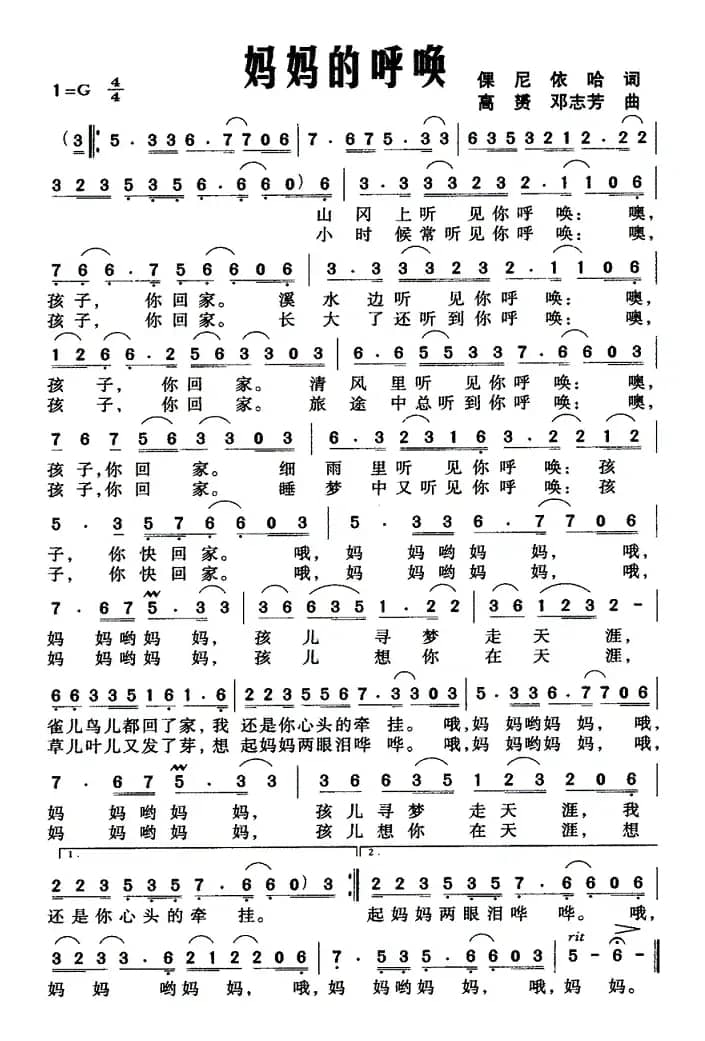 妈妈的呼唤
1=G 4/4
倮尼依哈 词
高赟 邓志芳 曲
(3 5·336·7706 7·675·33 6353212·22
3235356·660) 6 3·333232·1106
山冈上听见你呼唤：噢，
小时候常听见你呼唤：噢，
766·756606 3·333232·1106
孩子，你回家。溪水边听见你呼唤：噢，
孩子，你回家。长大了还听到你呼唤：噢，
1266·2563303 6·655337·6603
孩子，你回家。清风里听见你呼唤：噢，
孩子，你回家。旅途中总听到你呼唤：噢，
767563303 6·323163·2212
孩子，你回家。细雨里听见你呼唤：孩
孩子，你回家。睡梦中又听见你呼唤：孩
5·3576603 5·336·7706
子，你快回家。哦，妈妈哟妈妈，哦，
子，你快回家。哦，妈妈哟妈妈，哦，
7·675·33 366351·22 361232-
妈妈哟妈妈，孩儿寻梦走天涯，
妈妈哟妈妈，孩儿想你在天涯，
66335161·6 2235567·3303 5·336·7706
雀儿鸟儿都回了家，我还是你心头的牵挂。哦，妈妈哟妈妈，哦，
草儿叶儿又发了芽，想起妈妈两眼泪哗哗。哦，妈妈哟妈妈，哦，
7·675·33 36635123206
妈妈哟妈妈，孩儿寻梦走天涯，我
妈妈哟妈妈，孩儿想你在天涯，想
1. 2.
2235357·660) 3 2235357·6606
还是你心头的牵挂。起妈妈两眼泪哗哗。哦，
rit
3233·212206 7·535·6603 5-6-
妈妈哟妈妈，哦，妈妈哟妈妈，哦，妈妈。